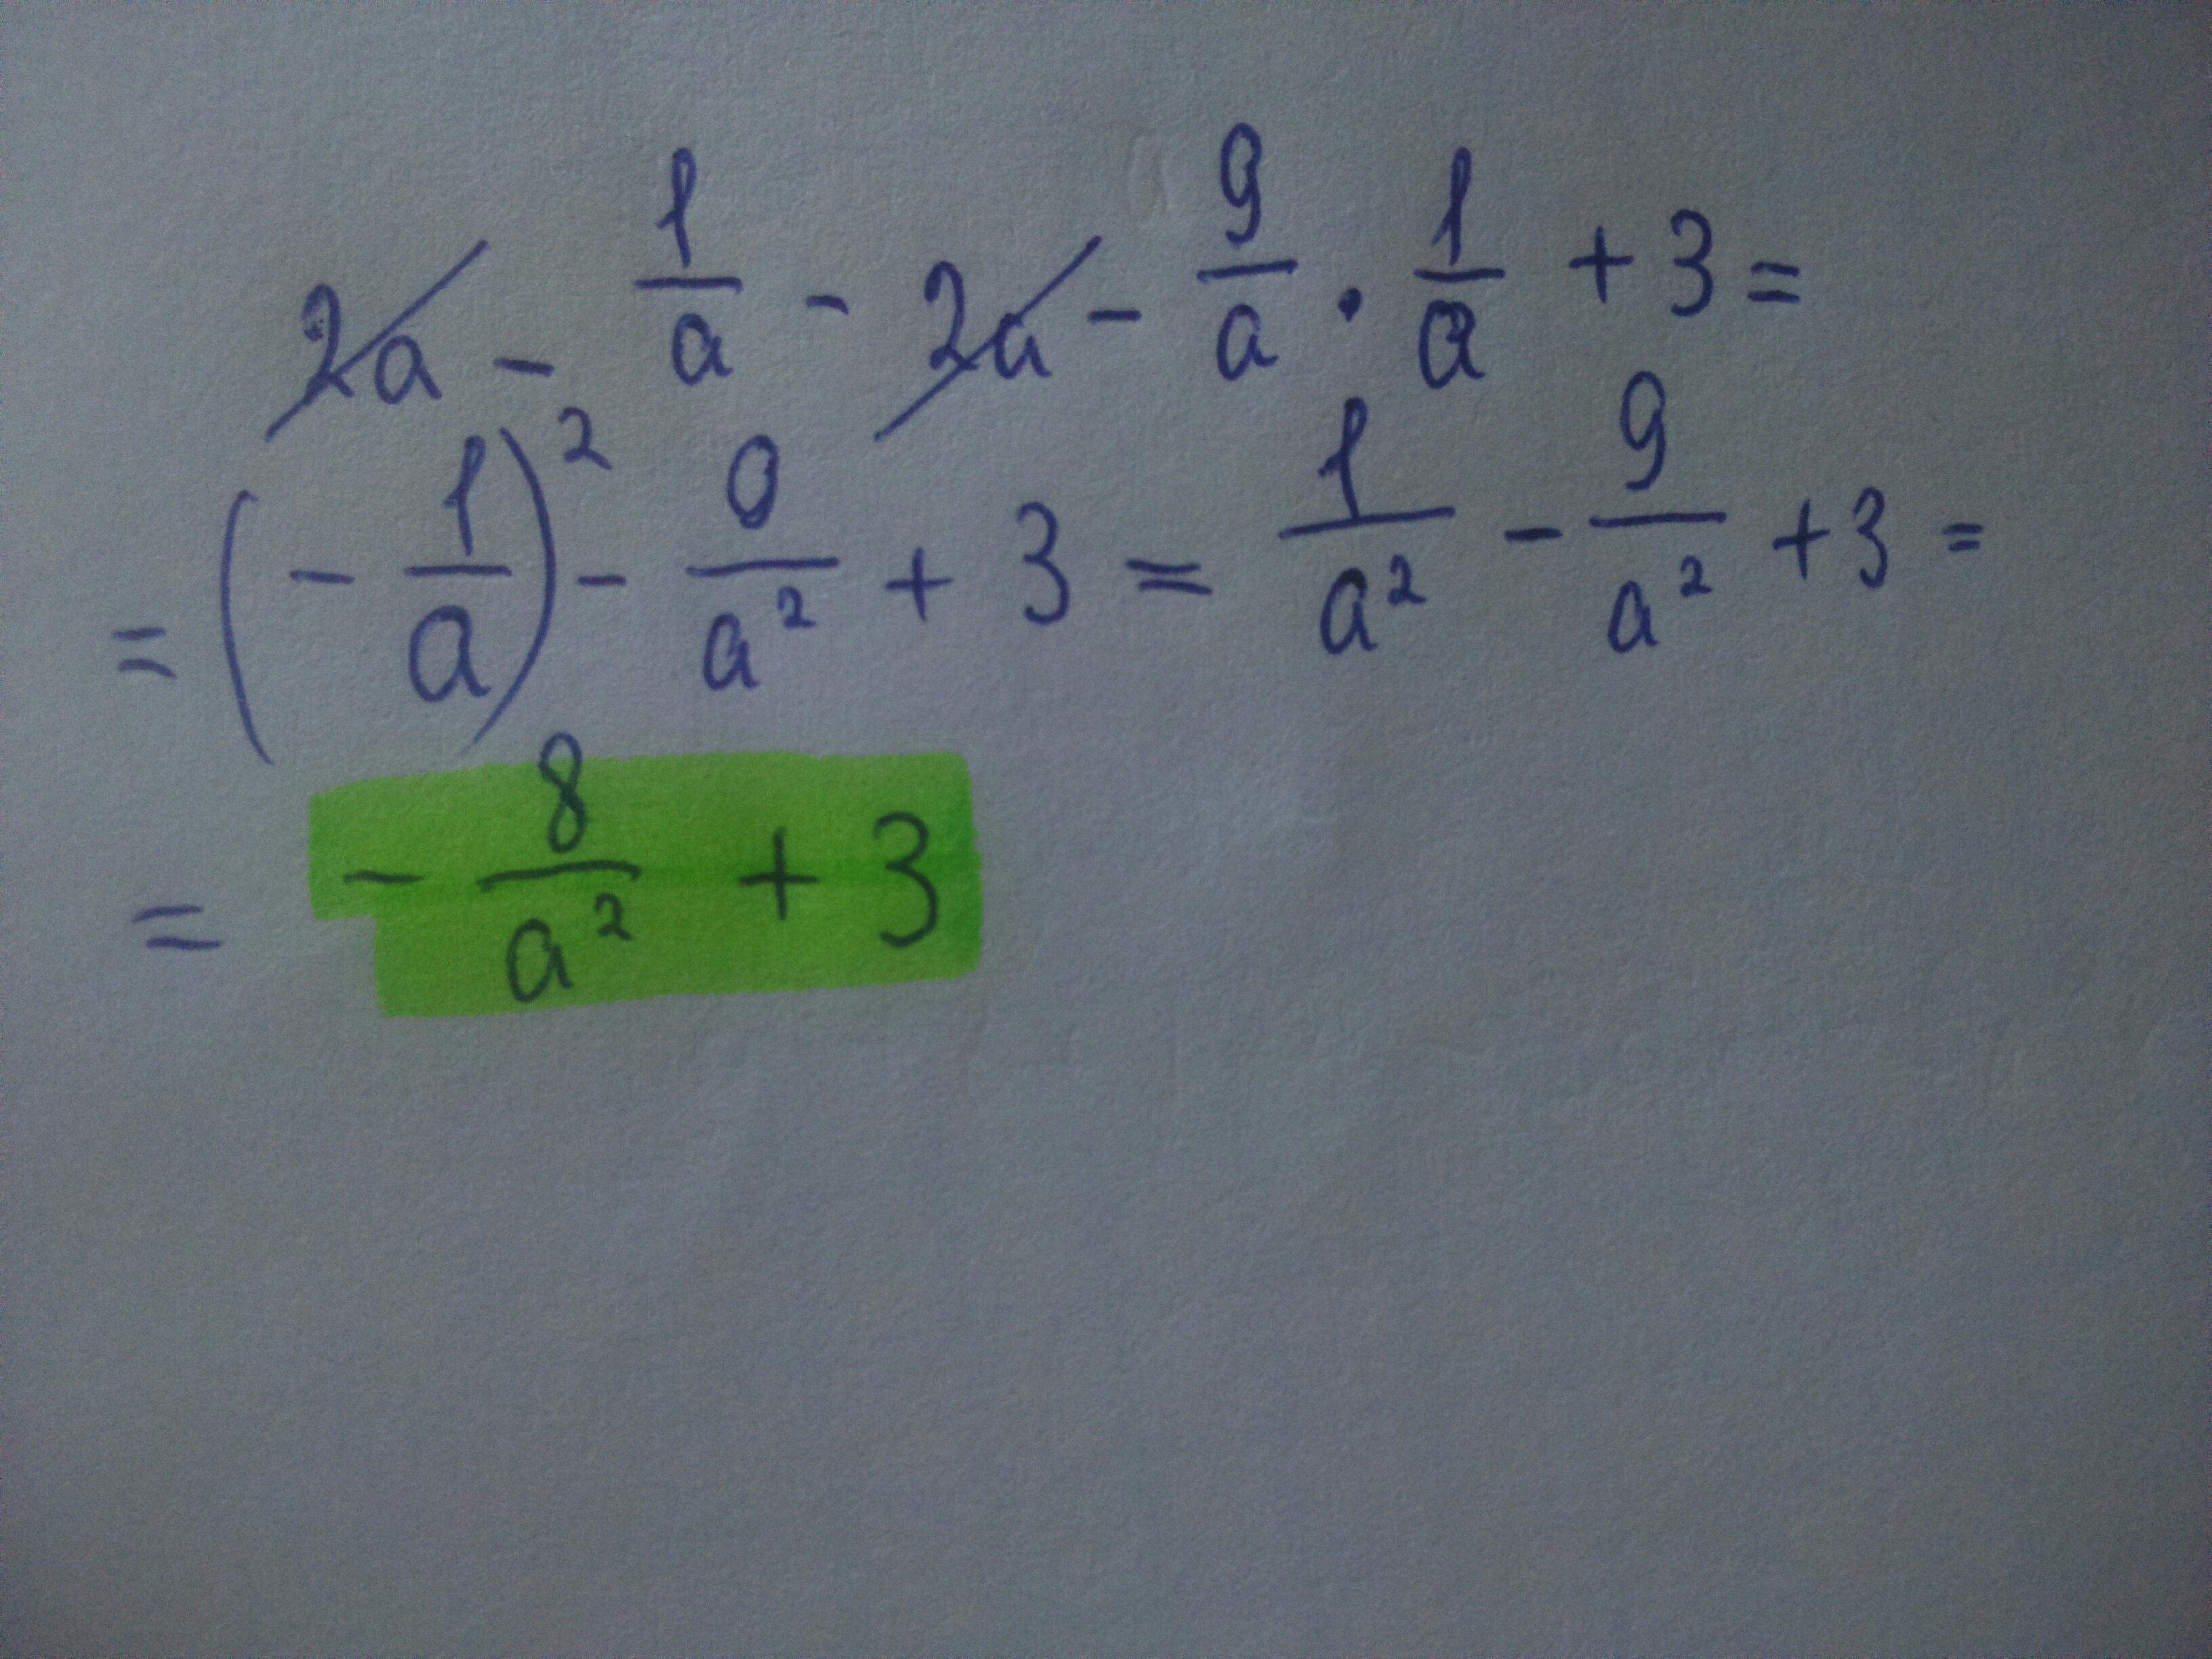 2a - 1/a - 2a - 9/a · 1/a + 3 =
= (- 1/a)² - 0/a² + 3 = 1/a² - 9/a² + 3 =
= - 8/a² + 3